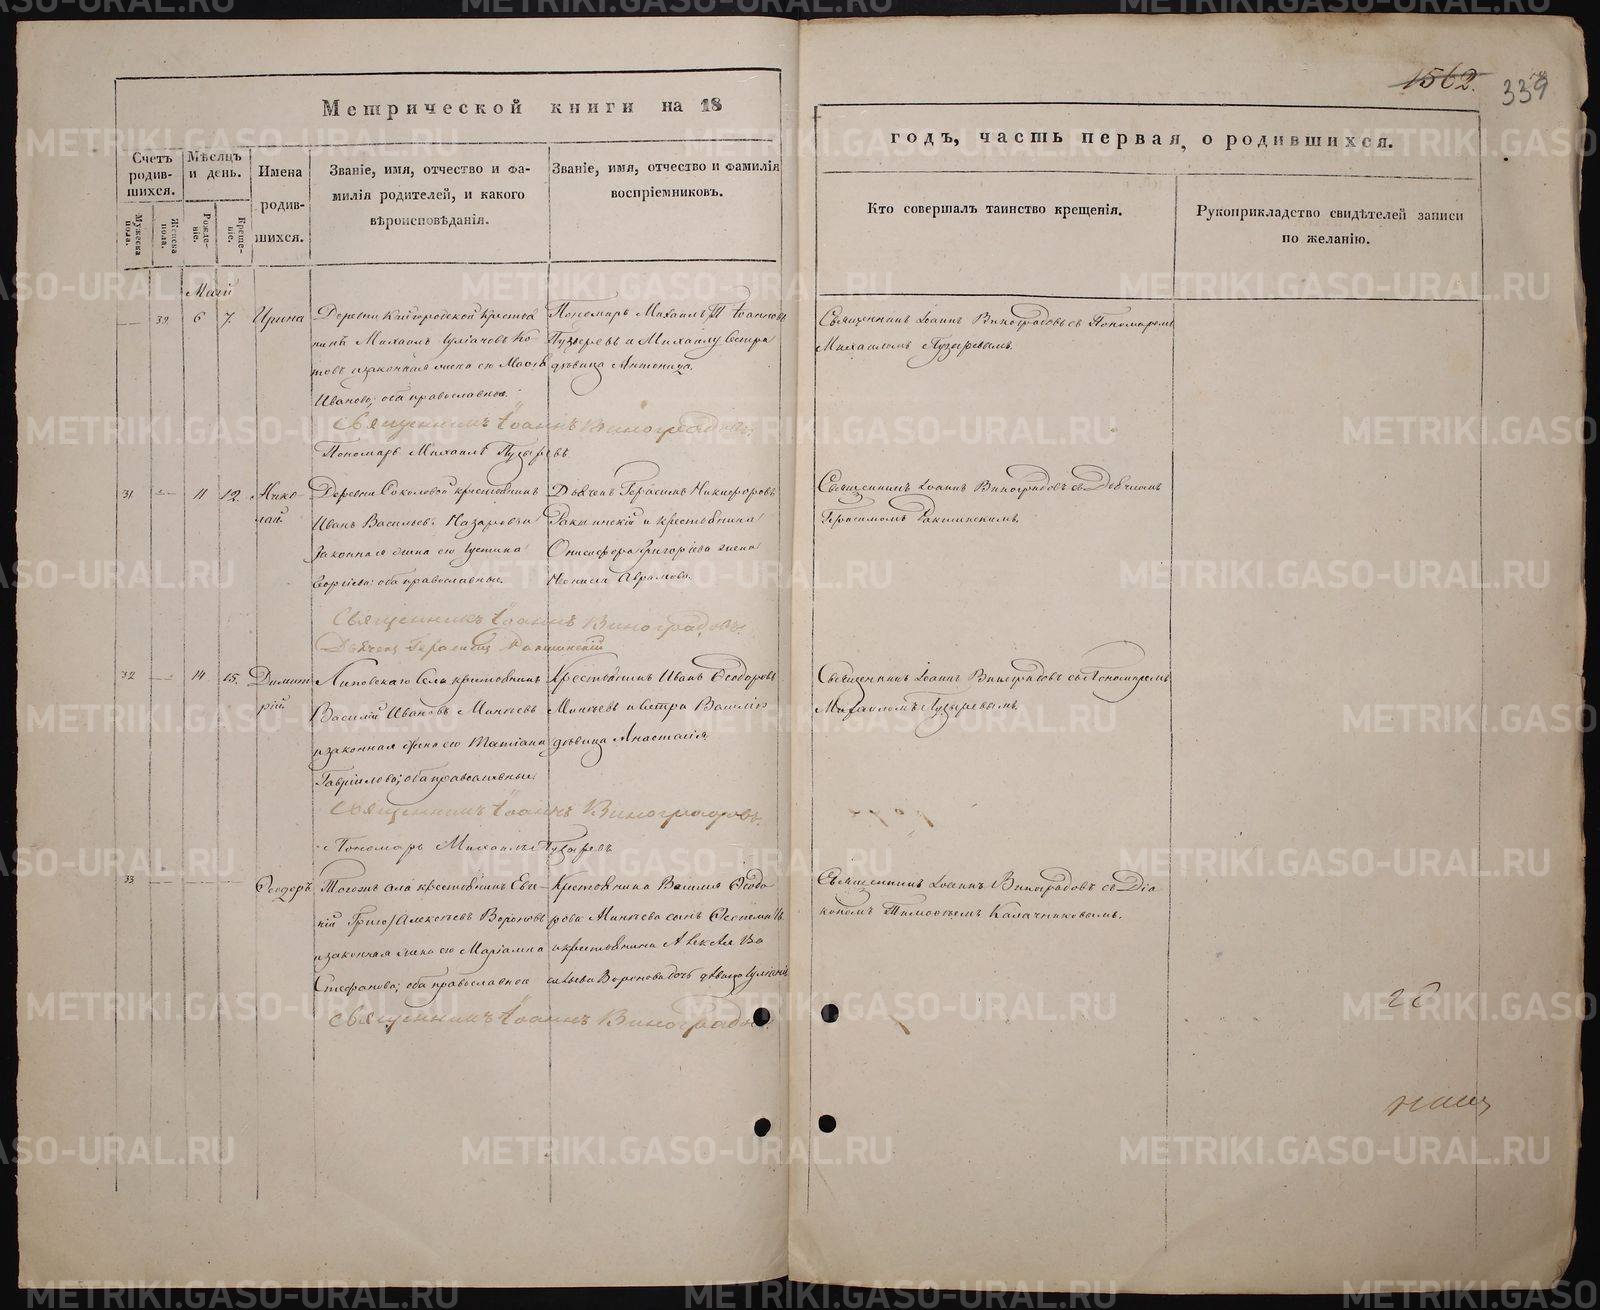 1562.
339
Метрической книги на 18
годъ, часть первая, о родившихся.
Счетъ родив-шихся.
Мужеска пола.
Женска пола.
Мѣсяцъ и день.
Рожде-ніе.
Креще-ніе.
Имена
родив-
шихся.
Званіе, имя, отчество и фа-
милія родителей, и какого
вѣроисповѣданія.
Званіе, имя, отчество и фамилія
воспріемниковъ.
Кто совершалъ таинство крещенія.
Рукоприкладство свидѣтелей записи
по желанію.
Маій
6 7. Ирина
Деревни Кайгородской крестья
нинъ Михаилъ
законная жена его
Иванова; оба православные.
Пономарь Михаилъ Іоанновъ
Пузыревъ и Михаилу сестра
дѣвица Антонида.
Священникъ Іоаннъ Виноградовъ съ Пономаремъ
Михаиломъ Пузыревымъ.
Священникъ Іоаннъ Виноградовъ.
Пономарь Михаилъ Пузыревъ
31 11 12. Нико-
лай.
Деревни Соколовой крестьянинъ
Иванъ Васильевъ Назаровъ и
законная жена его Іустина
оба православные.
Дьячекъ Герасимъ Никифоровъ
Ракшинскій и крестьянина
Онисифора Григорьева жена
Неонила Аврамова.
Священникъ Іоаннъ Виноградовъ съ Дьячкомъ
Герасимомъ Ракшинскимъ.
Священникъ Іоаннъ Виноградовъ.
Дьячекъ Герасимъ Ракшинскій
32 14 15. Димит
рій.
Липовскаго села крестьянинъ
Василій Ивановъ Минѣевъ
и законная жена его Татіана
Гавриилова; оба православные
Крестьянинъ Иванъ Ѳеодоровъ
Минѣевъ и сестра Василію
дѣвица Анастасія.
Священникъ Іоаннъ Виноградовъ съ Пономаремъ
Михаиломъ Пузыревымъ.
Священникъ Іоаннъ Виноградовъ.
Пономарь Михаилъ Пузыревъ
33 Ѳеодоръ
Тогожъ села крестьянинъ
Алексѣевъ Вороновъ
и законная жена его Маріамна
Стефанова; оба православные
Крестьянина Василія Ѳеодо
рова Минѣева сынъ
и крестьянина Алексѣя Ва
сильева Воронова дочь дѣвица Іуліанія
Священникъ Іоаннъ Виноградовъ съ Діа
кономъ Тимоѳеемъ Калачниковымъ.
Священникъ Іоаннъ Виноградовъ.
METRIKI.GASO-URAL.RU